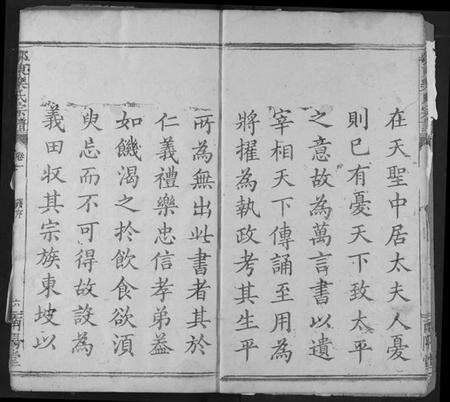 在天聖中居太夫人憂
則已有憂天下致太平
之意故為萬言書以遺
宰相天下傳誦至用為
將擢為執政考其生平
所為無出此書者其於
仁義禮樂忠信孝弟葢
如饑渴之扵飲食欲湏
臾忘而不可得故設為
義田収其宗族東坡以
氏宗譜
卷一